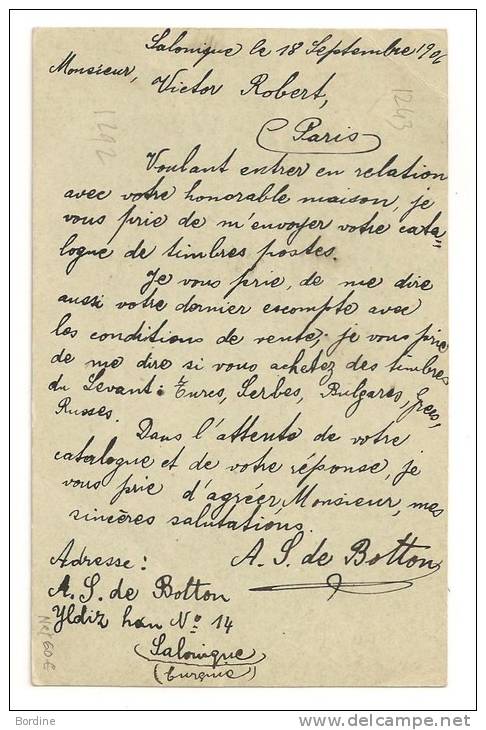 Salonique le 18 Septembre 190
Monsieur,
Victor Robert,
Paris
1242
1243
Voulant entrer en relation
avec votre honorable maison, je
vous prie de m'envoyer votre cata=
logue de timbres postes.
Je vous prie, de me dire
aussi votre dernier escompte avec
les conditions de vente, je vous prie
de me dire si vous achetez des timbres
du Levant: Turcs, Serbes, Bulgares, Grecs,
Russes.
Dans l'attente de votre
catalogue et de votre réponse, je
vous prie d'agréer, Monsieur, mes
sincères salutations.
A. S. de Botton
Adresse:
A. S. de Botton
Yldiz han No 14
Salonique
(Turquie)
Net 60 €
Bordine
delcampe.net